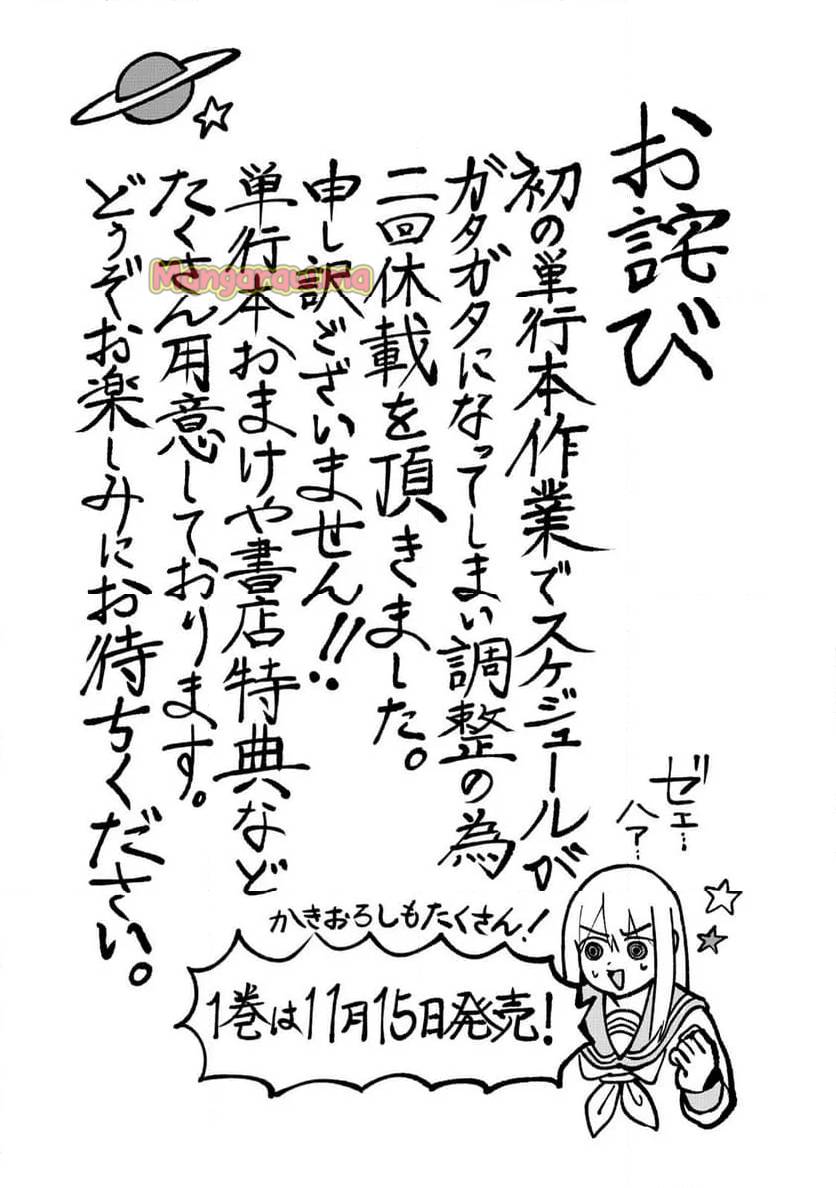 お詫び
初の単行本作業でスケジュールが
ガタガタになってしまい調整の為
二回休載を頂きました。
申し訳ございません!!
単行本おまけや書店特典など
たくさん用意しております。
どうぞお楽しみにお待ちください。
Mangaraw.ma
ゼェ…
ハァ…
かきおろしもたくさん!
1巻は11月15日発売!